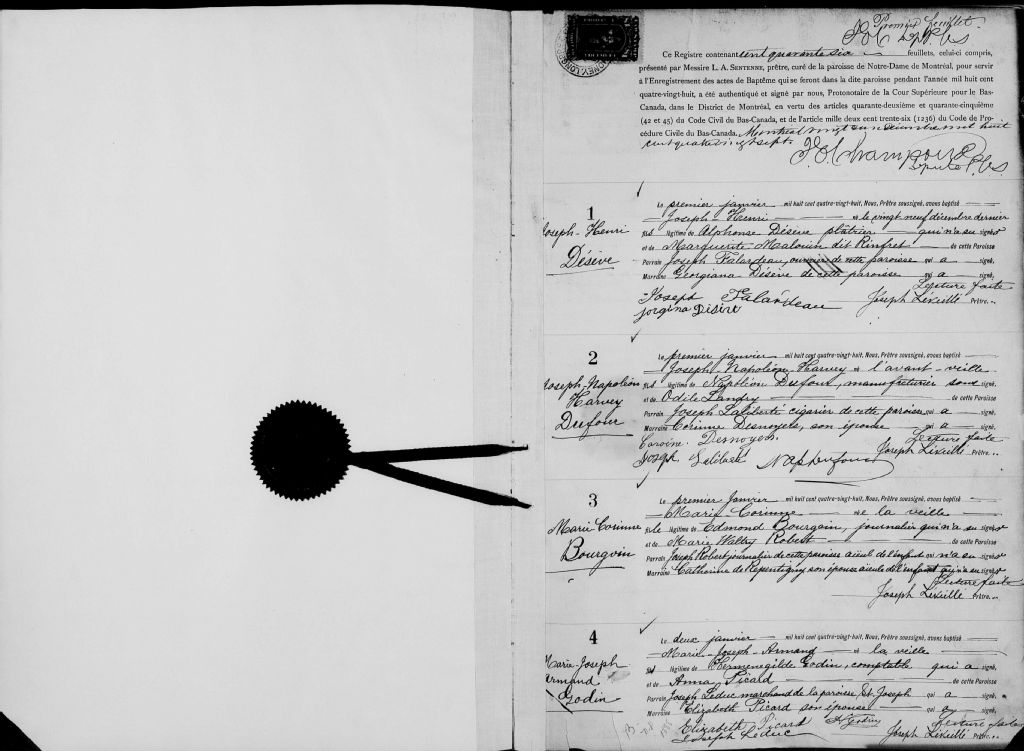 Premier feuillet
Ce Registre contenant cent quarante six feuillets, celui-ci compris,
présenté par Messire L. A. SENTENNE, prêtre, curé de la paroisse de Notre-Dame de Montréal, pour servir
à l'Enregistrement des actes de Baptême qui se feront dans la dite paroisse pendant l'année mil huit cent
quatre-vingt-huit, a été authentiqué et signé par nous, Protonotaire de la Cour Supérieure pour le Bas-
Canada, dans le District de Montréal, en vertu des articles quarante-deuxième et quarante-cinquième
(42 et 45) du Code Civil du Bas-Canada, et de l'article mille deux cent trente-six (1236) du Code de Pro-
cédure Civile du Bas-Canada. Montréal vingt un décembre mil huit
cent quatre vingt sept.
1
Joseph-Henri
Désève
Le premier janvier mil huit cent quatre-vingt-huit, Nous, Prêtre soussigné, avons baptisé
Joseph-Henri né le vingt neuf décembre dernier
fils légitime de Alphonse Désève plâtrier qui n'a su signer
et de Marguerite Malouin dit Rinfret de cette Paroisse
Parrain Joseph Falardeau, ouvrier de cette paroisse qui a signé,
Marraine Georgiana Désève de cette paroisse qui a signé,
Lecture faite
Joseph Falardeau Joseph Léveillé Prêtre.
jorgina Désire
2
Joseph-Napoléon
Harvey
Dufour
Le premier janvier mil huit cent quatre-vingt-huit, Nous, Prêtre soussigné, avons baptisé
Joseph-Napoléon-Harvey né l'avant-veille
fils légitime de Napoléon Dufour, manufacturier sous signé,
et de Odile Landry de cette Paroisse
Parrain Joseph Laliberté cigarier de cette paroisse qui a signé,
Marraine Corinne Desnoyers, son épouse qui a signé,
Lecture faite
Coroine Desnoyers Joseph Léveillé Prêtre.
Joseph Laliberté Nap Dufour
3
Marie Corinne
Bourgoin
Le premier Janvier mil huit cent quatre-vingt-huit, Nous, Prêtre soussigné, avons baptisé
Marie-Corinne née la veille
fille légitime de Edmond Bourgoin, journalier qui n'a su signer
et de Marie Robert de cette Paroisse
Parrain Joseph Robert journalier de cette paroisse aïeul de l'enfant qui n'a su signer
Marraine Catherine de Repentigny son épouse aïeule de l'enfant qui n'a su signer
Lecture faite
Joseph Léveillé Prêtre.
4
Marie-Joseph
Armand
Godin
Le deux janvier mil huit cent quatre-vingt-huit, Nous, Prêtre soussigné, avons baptisé
Marie-Joseph-Armand né la veille
fils légitime de Herménégilde Godin, comptable qui a signé,
et de Anna Picard de cette Paroisse
Parrain Joseph Leduc marchand de la paroisse St. Joseph qui a signé,
Marraine Elizabeth Picard son épouse qui a signé,
Elizabeth Picard H Godin Lecture faite
Joseph Leduc Joseph Léveillé Prêtre.